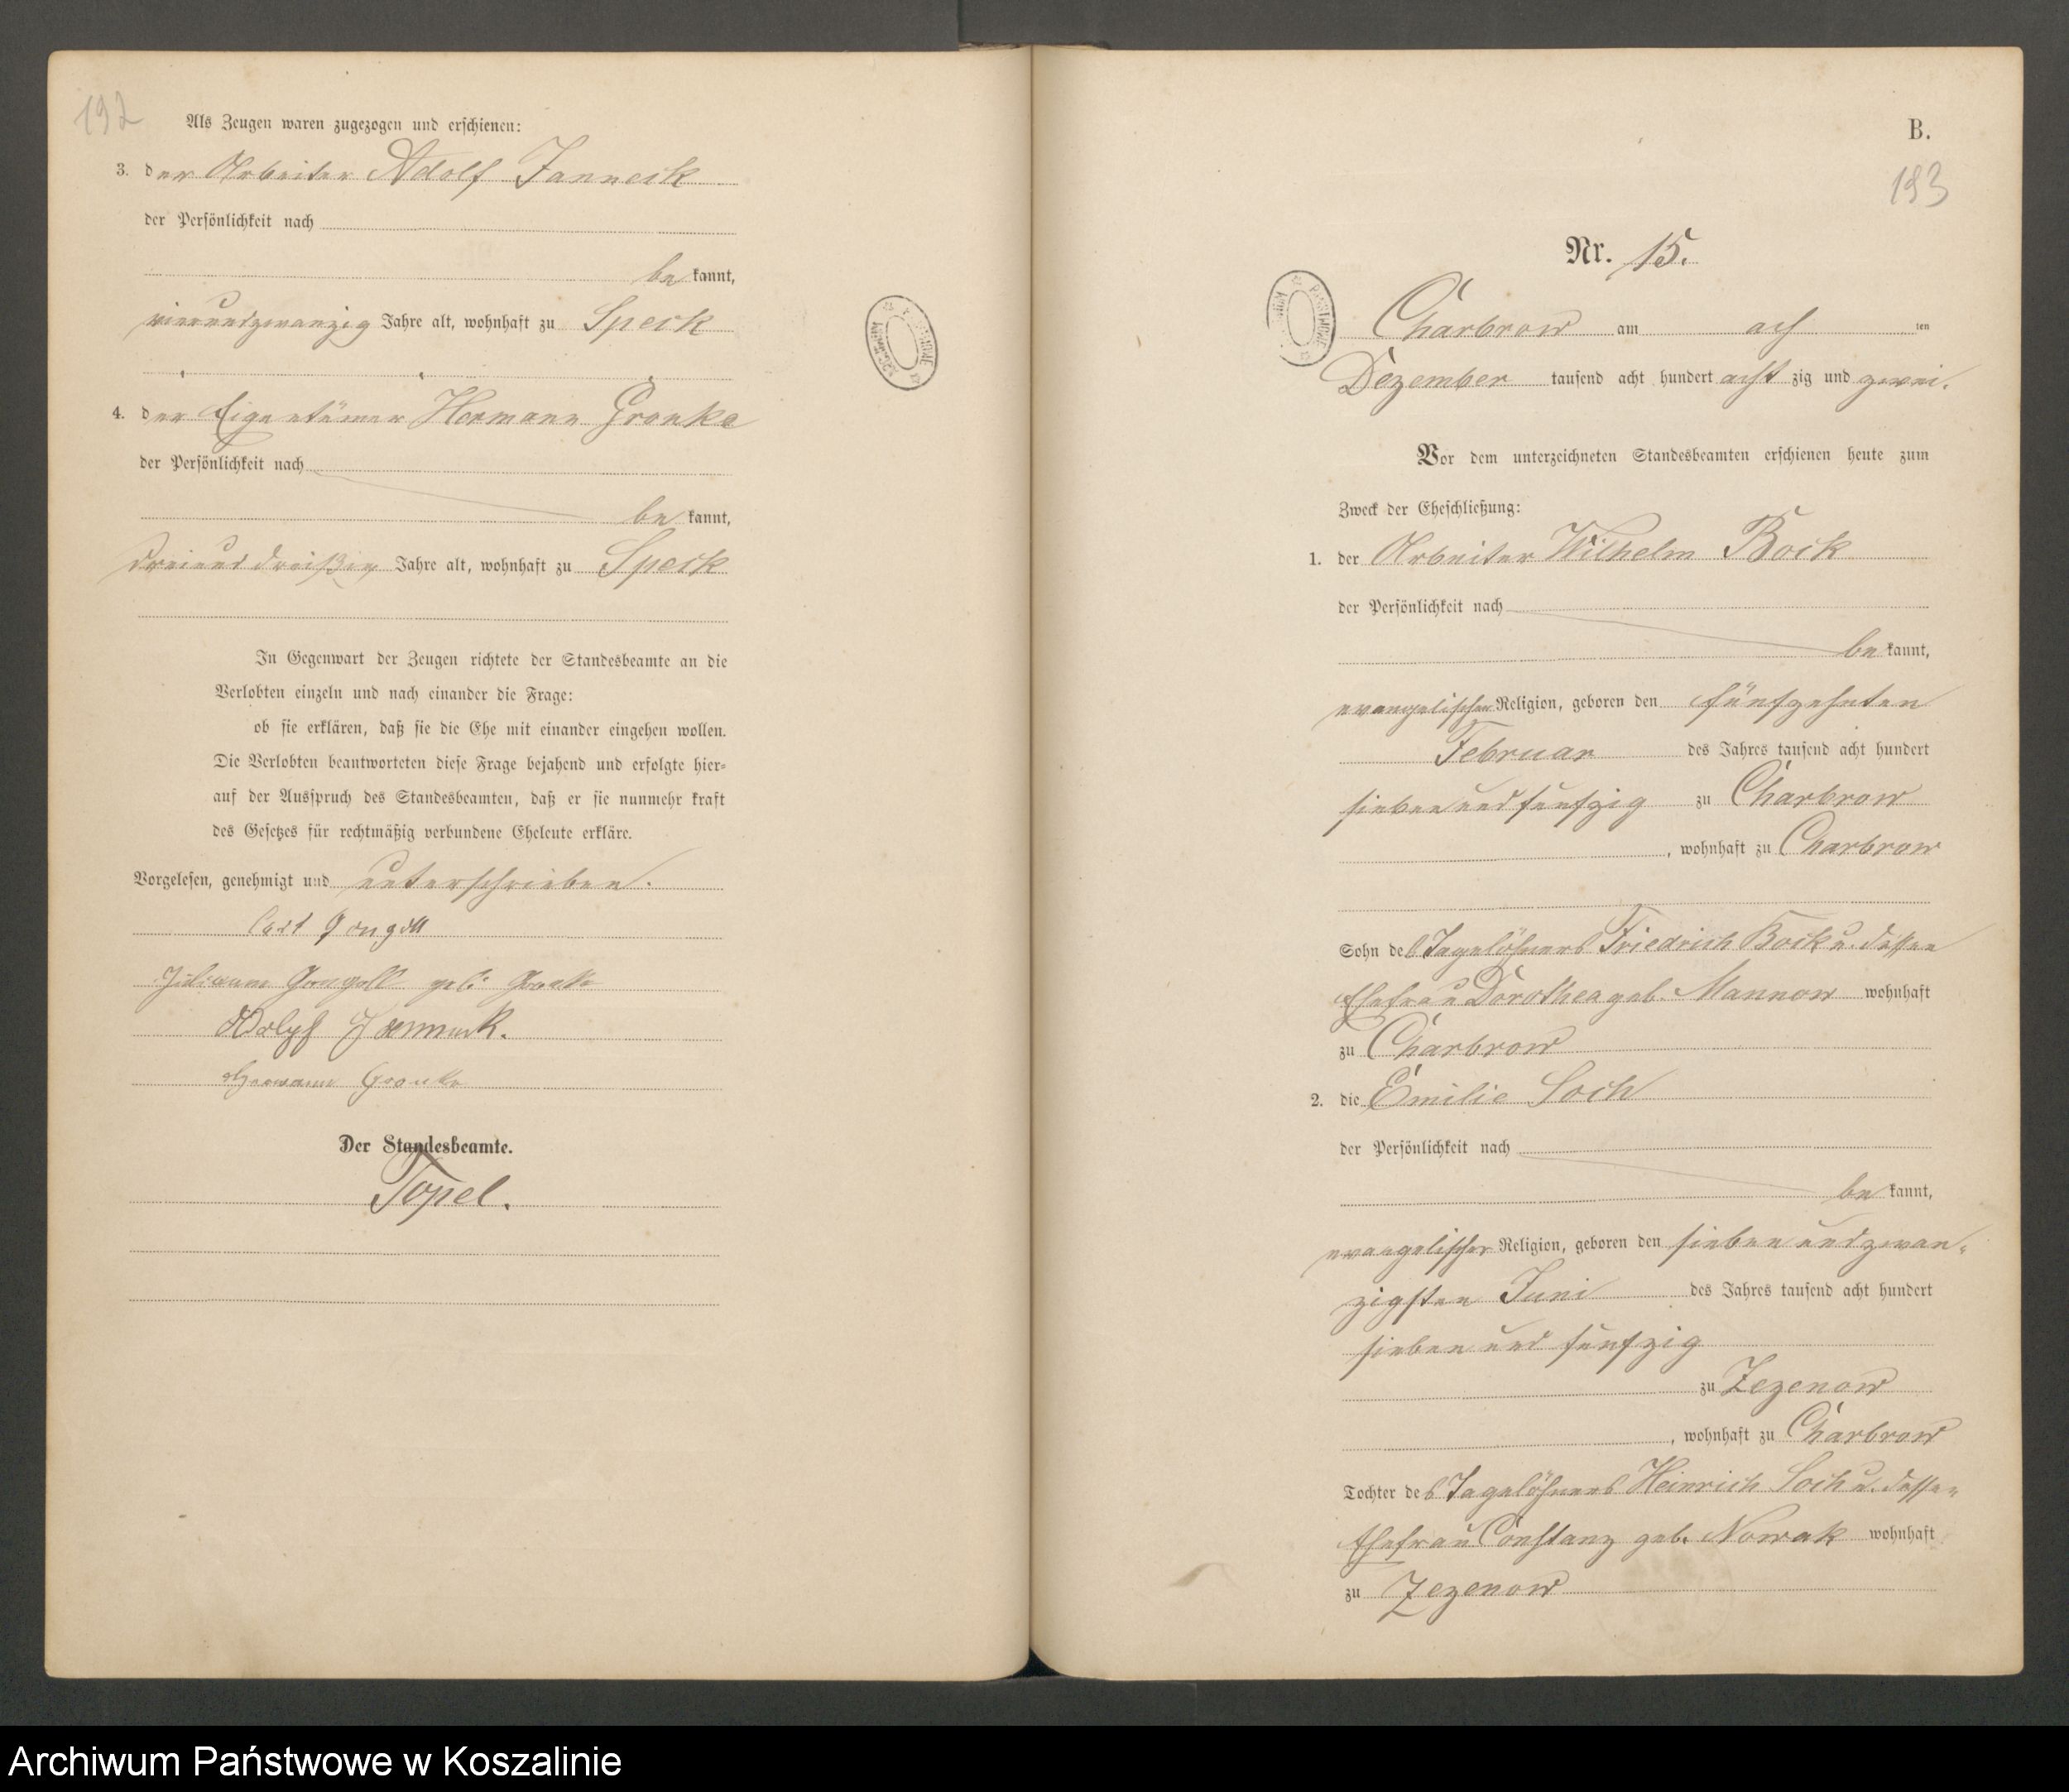 192
Als Zeugen waren zugezogen und erschienen:
3. der Arbeiter Adolf Janneck
der Persönlichkeit nach
be kannt,
vierundzwanzig Jahre alt, wohnhaft zu Speck
4. der Eigentümer Hermann Gronke
der Persönlichkeit nach
be kannt,
dreiund dreißig Jahre alt, wohnhaft zu Speck
In Gegenwart der Zeugen richtete der Standesbeamte an die
Verlobten einzeln und nach einander die Frage:
ob sie erklären, daß sie die Ehe mit einander eingehen wollen.
Die Verlobten beantworteten diese Frage bejahend und erfolgte hier-
auf der Ausspruch des Standesbeamten, daß er sie nunmehr kraft
des Gesetzes für rechtmäßig verbundene Eheleute erkläre.
Vorgelesen, genehmigt und unterschrieben.
Carl
Gongoll geb. Gronke
Adolph Janneck.
Hermann Gronke
Der Standesbeamte.
Topel.
B.
193
Nr. 15.
Charbrow am ach ten
Dezember tausend acht hundert acht zig und zwei.
Vor dem unterzeichneten Standesbeamten erschienen heute zum
Zweck der Eheschließung:
1. der Arbeiter Wilhelm Bock
der Persönlichkeit nach
be kannt,
evangelischer Religion, geboren den fünfzehnten
Februar des Jahres tausend acht hundert
sieben und fünfzig zu Charbrow
, wohnhaft zu Charbrow
Sohn des Tagelöhners Friedrich Bock u. dessen
Ehefrau Dorothea geb. Mannow wohnhaft
zu Charbrow
2. die Emilie Soch
der Persönlichkeit nach
be kannt,
evangelischer Religion, geboren den sieben und zwan-
zigsten Juni des Jahres tausend acht hundert
sieben und fünfzig
zu Zezenow
, wohnhaft zu Charbrow
Tochter des Tagelöhners Heinrich Soch u. dessen
Ehefrau Constanz geb. Nowak wohnhaft
zu Zezenow
Archiwum Państwowe w Koszalinie